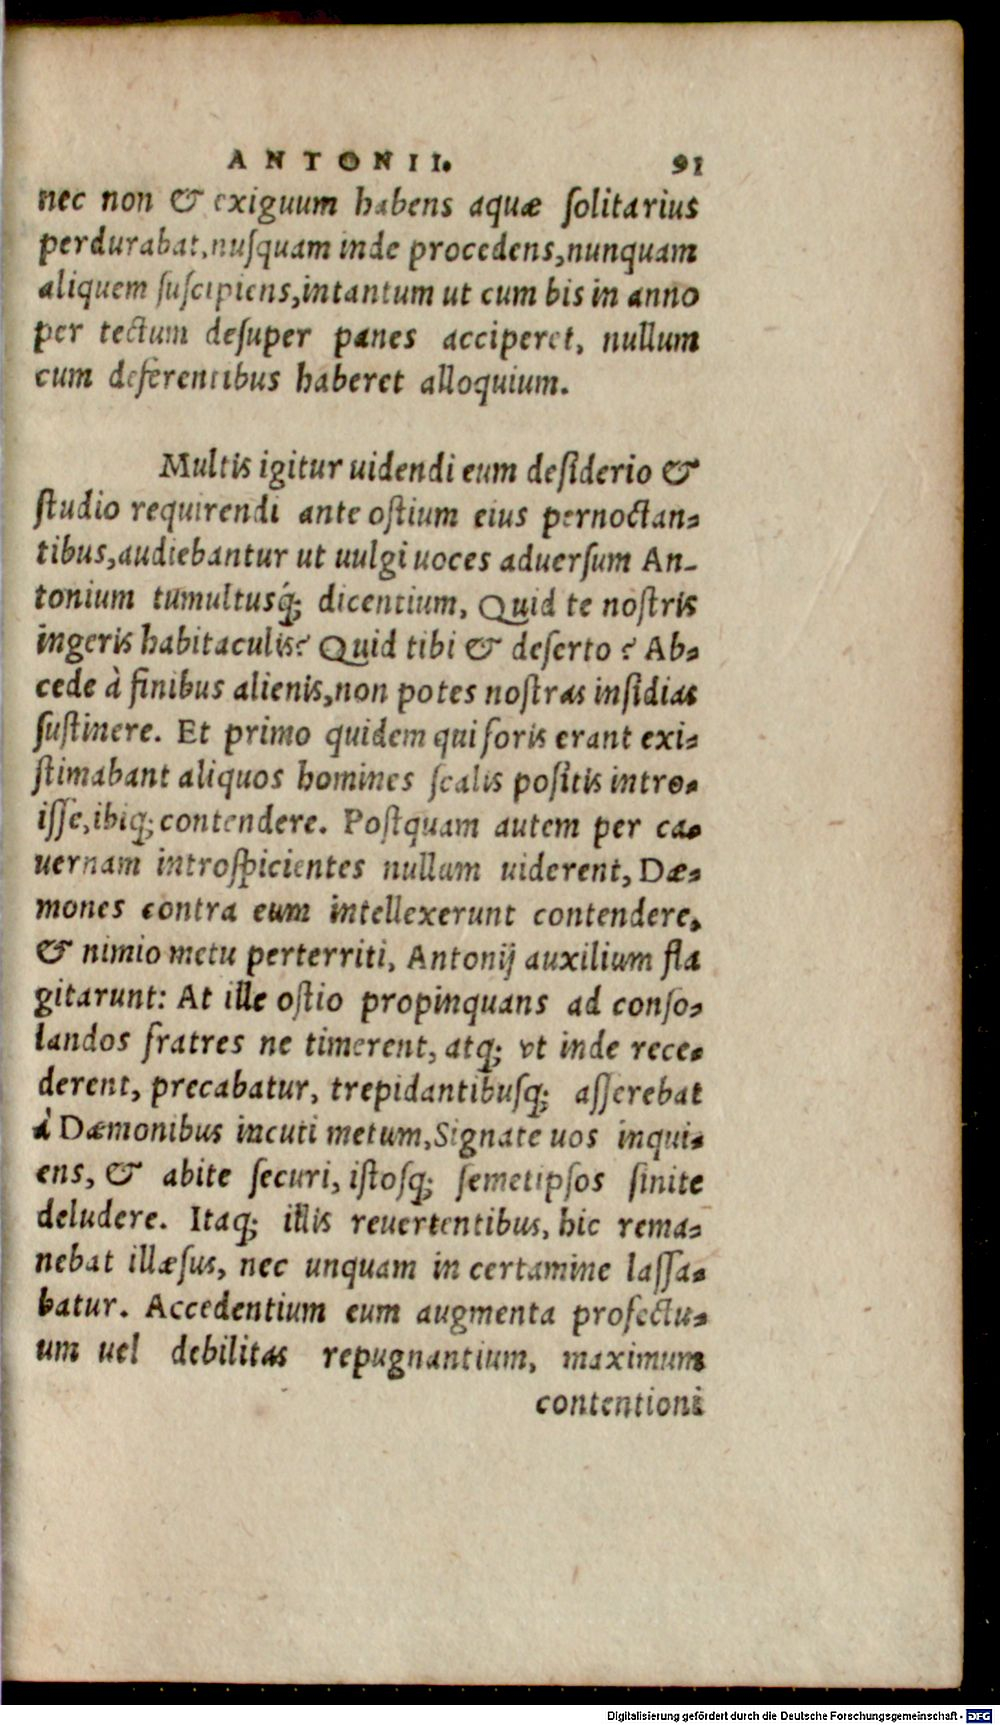 ANTONII. 91
nec non & exiguum habens aquæ ſolitarius
perdurabat, nuſquam inde procedens, nunquam
aliquem ſuſcipiens, intantum ut cum bis in anno
per tectum deſuper panes acciperet, nullum
cum deferentibus haberet alloquium.
Multis igitur uidendi eum deſiderio &
ſtudio requirendi ante oſtium eius pernoctan-
tibus, audiebantur ut uulgi uoces aduerſum An-
tonium tumultusq́; dicentium, Quid te noſtris
ingeris habitaculis? Quid tibi & deſerto? Ab-
cede à finibus alienis, non potes noſtras inſidias
ſuſtinere. Et primo quidem qui foris erant exi-
ſtimabant aliquos homines ſcalis poſitis intro-
iſſe, ibiq; contendere. Poſtquam autem per ca-
uernam introſpicientes nullum uiderent, Dæ-
mones contra eum intellexerunt contendere,
& nimio metu perterriti, Antonij auxilium fla
gitarunt: At ille oſtio propinquans ad conſo-
landos fratres ne timerent, atq; vt inde rece-
derent, precabatur, trepidantibuſq; aſſerebat
à Dæmonibus incuti metum, Signate uos inqui-
ens, & abite ſecuri, iſtoſq; ſemetipſos ſinite
deludere. Itaq; illis reuertentibus, hic rema-
nebat illæſus, nec unquam in certamine laſſa-
batur. Accedentium eum augmenta profectu-
um uel debilitas repugnantium, maximum
contentioni
Digitalisierung gefördert durch die Deutsche Forschungsgemeinschaft - DFG